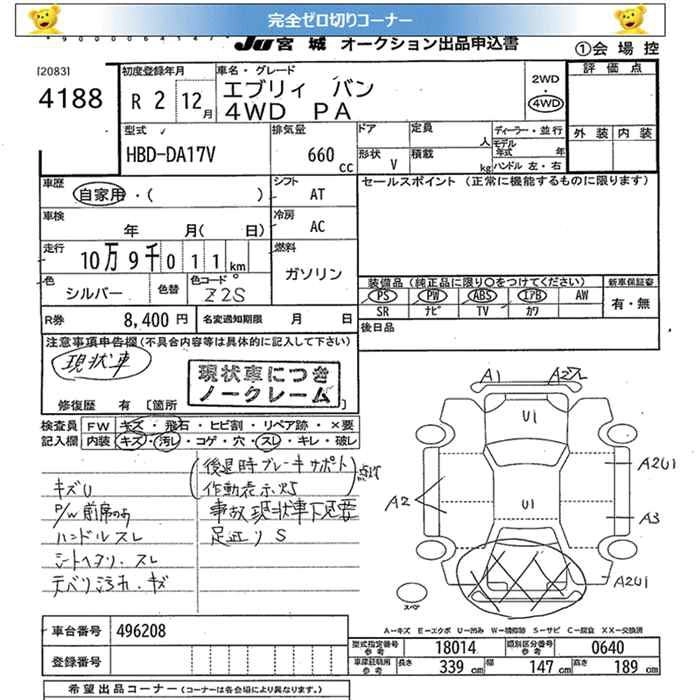 完全ゼロ切りコーナー
JU宮 城 オークション出品申込書
①会 場 控
[2083]
4188
初度登録年月
R 2 12月
車名・グレード
エブリィ バン
4WD PA
2WD
4WD
評価点
外装 内装
型式
HBD-DA17V
排気量
660 cc
ドア
定員
人
ディーラー・並行
モデル年式 年
形状
V
積載
kg
ハンドル 左・右
車歴
自家用・( )
シフト
AT
セールスポイント (正常に機能するものに限ります)
車検
年 月( 日)
冷房
AC
走行
10万9千011km
燃料
ガソリン
色
シルバー
色替
色コード
Z2S
装備品 (純正品に限り○をつけてください)
新車保証書
PS PW ABS エアB AW
SR ナビ TV カワ
有・無
R券
8,400 円
名変通知期限 月 日
後日品
注意事項申告欄(不具合内容等は具体的に記入して下さい)
現状車
現状車につき
ノークレーム
修復歴 有 [箇所 ]
検査員記入欄
FW キズ・飛石・ヒビ割・リペア跡・×要
内装 キズ・汚レ・コゲ・穴・スレ・キレ・破レ
キズU
P/W前席のみ
ハンドルスレ
シートヘタリ、スレ
天ベリ汚れ・キズ
(後退時ブレーキサポト
作動表示灯) 点灯
事故現状車下見要
足廻りS
A1
A2スレ
U1
A2U1
A2
U1
A3
A2U1
スペア
A-キズ E-エクボ U-凹み W-補修跡 S-サビ C-腐食 XX-交換済
車台番号 496208
型式指定番号参考 18014
類別区分番号参考 0640
登録番号
車庫証明用参考 長さ 339cm 幅 147cm 高さ 189cm
希望出品コーナー (コーナーは各会場により異なります。)